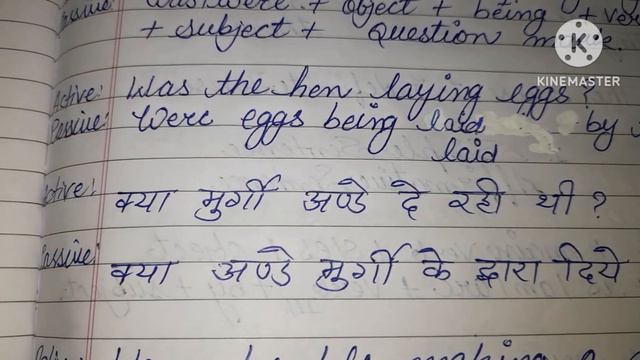 Was/were + object + being + ver
+ subject + Question mark.
KINEMASTER
Active: Was the hen laying eggs?
Passive: Were eggs being laid by
laid
Active: क्या मुर्गी अण्डे दे रही थी ?
Passive: क्या अण्डे मुर्गी के द्वारा दिये